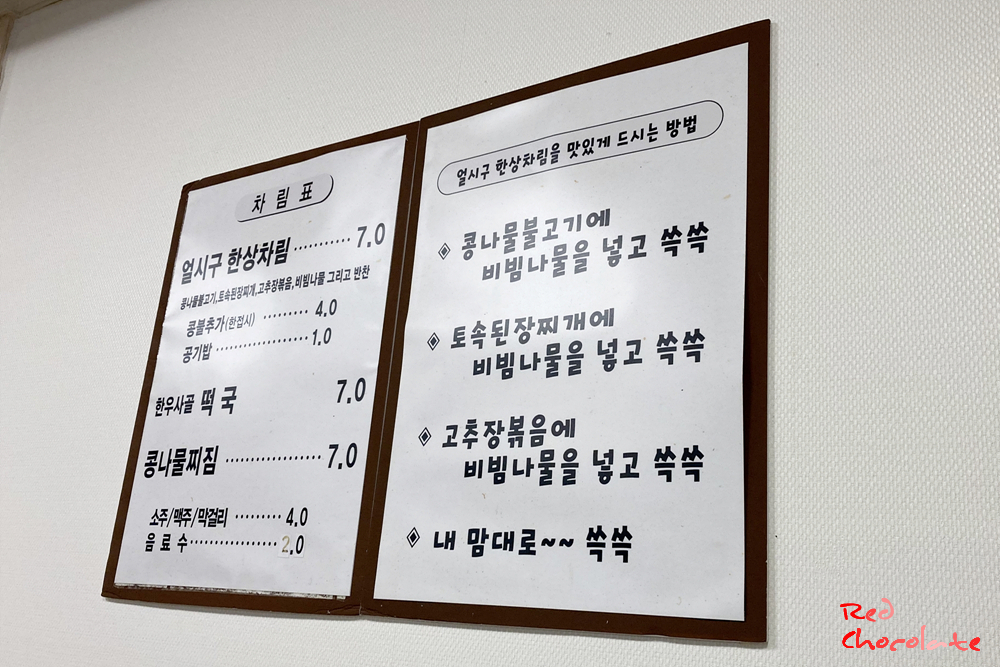 차 림 표
얼시구 한상차림 ·········· 7.0
콩나물불고기,토속된장찌개,고추장볶음,비빔나물 그리고 반찬
콩불추가(한접시) ········· 4.0
공기밥 ·················· 1.0
한우사골 떡 국 7.0
콩나물찌짐 ·················· 7.0
소주/맥주/막걸리 ········· 4.0
음 료 수 ·················· 2.0
얼시구 한상차림을 맛있게 드시는 방법
◈ 콩나물불고기에
비빔나물을 넣고 쓱쓱
◈ 토속된장찌개에
비빔나물을 넣고 쓱쓱
◈ 고추장볶음에
비빔나물을 넣고 쓱쓱
◈ 내 맘대로~~ 쓱쓱
Red
Chocolate